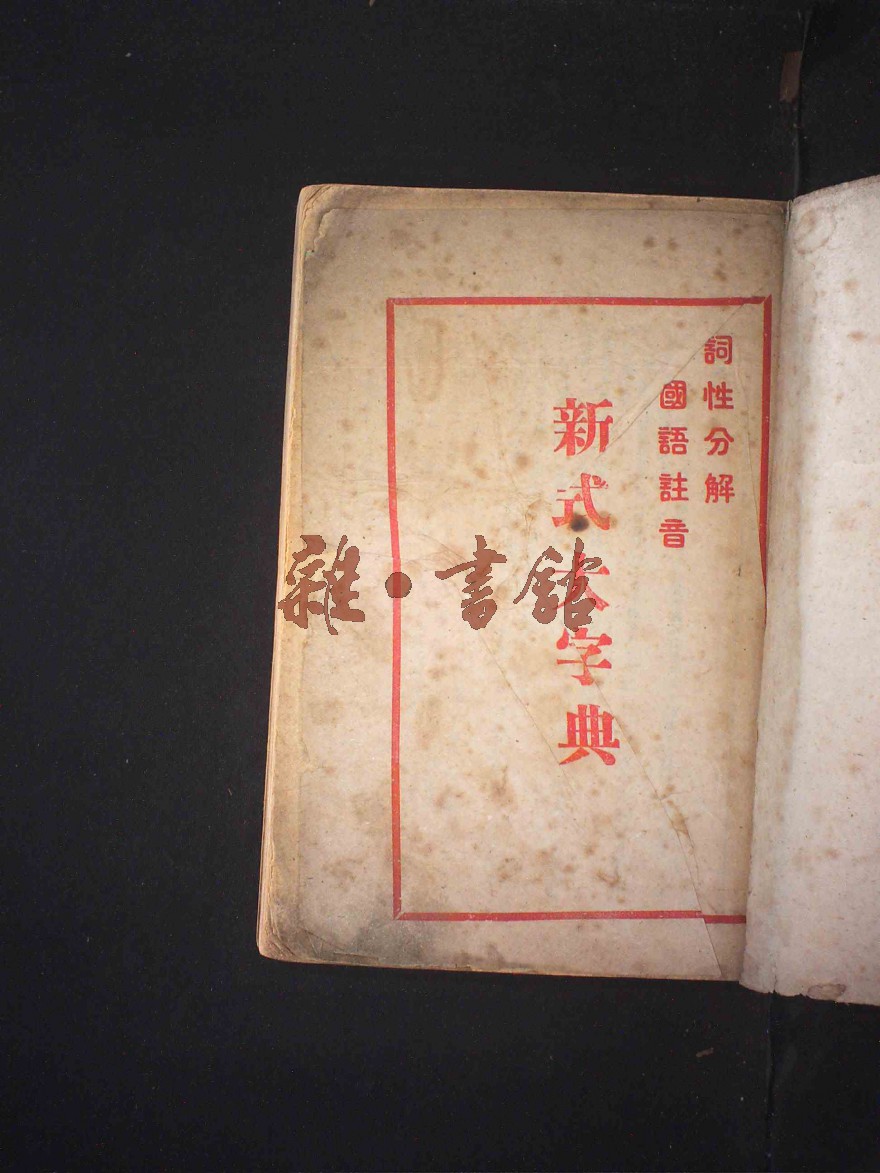 詞性分解
國語註音
新式大字典
雜·書館